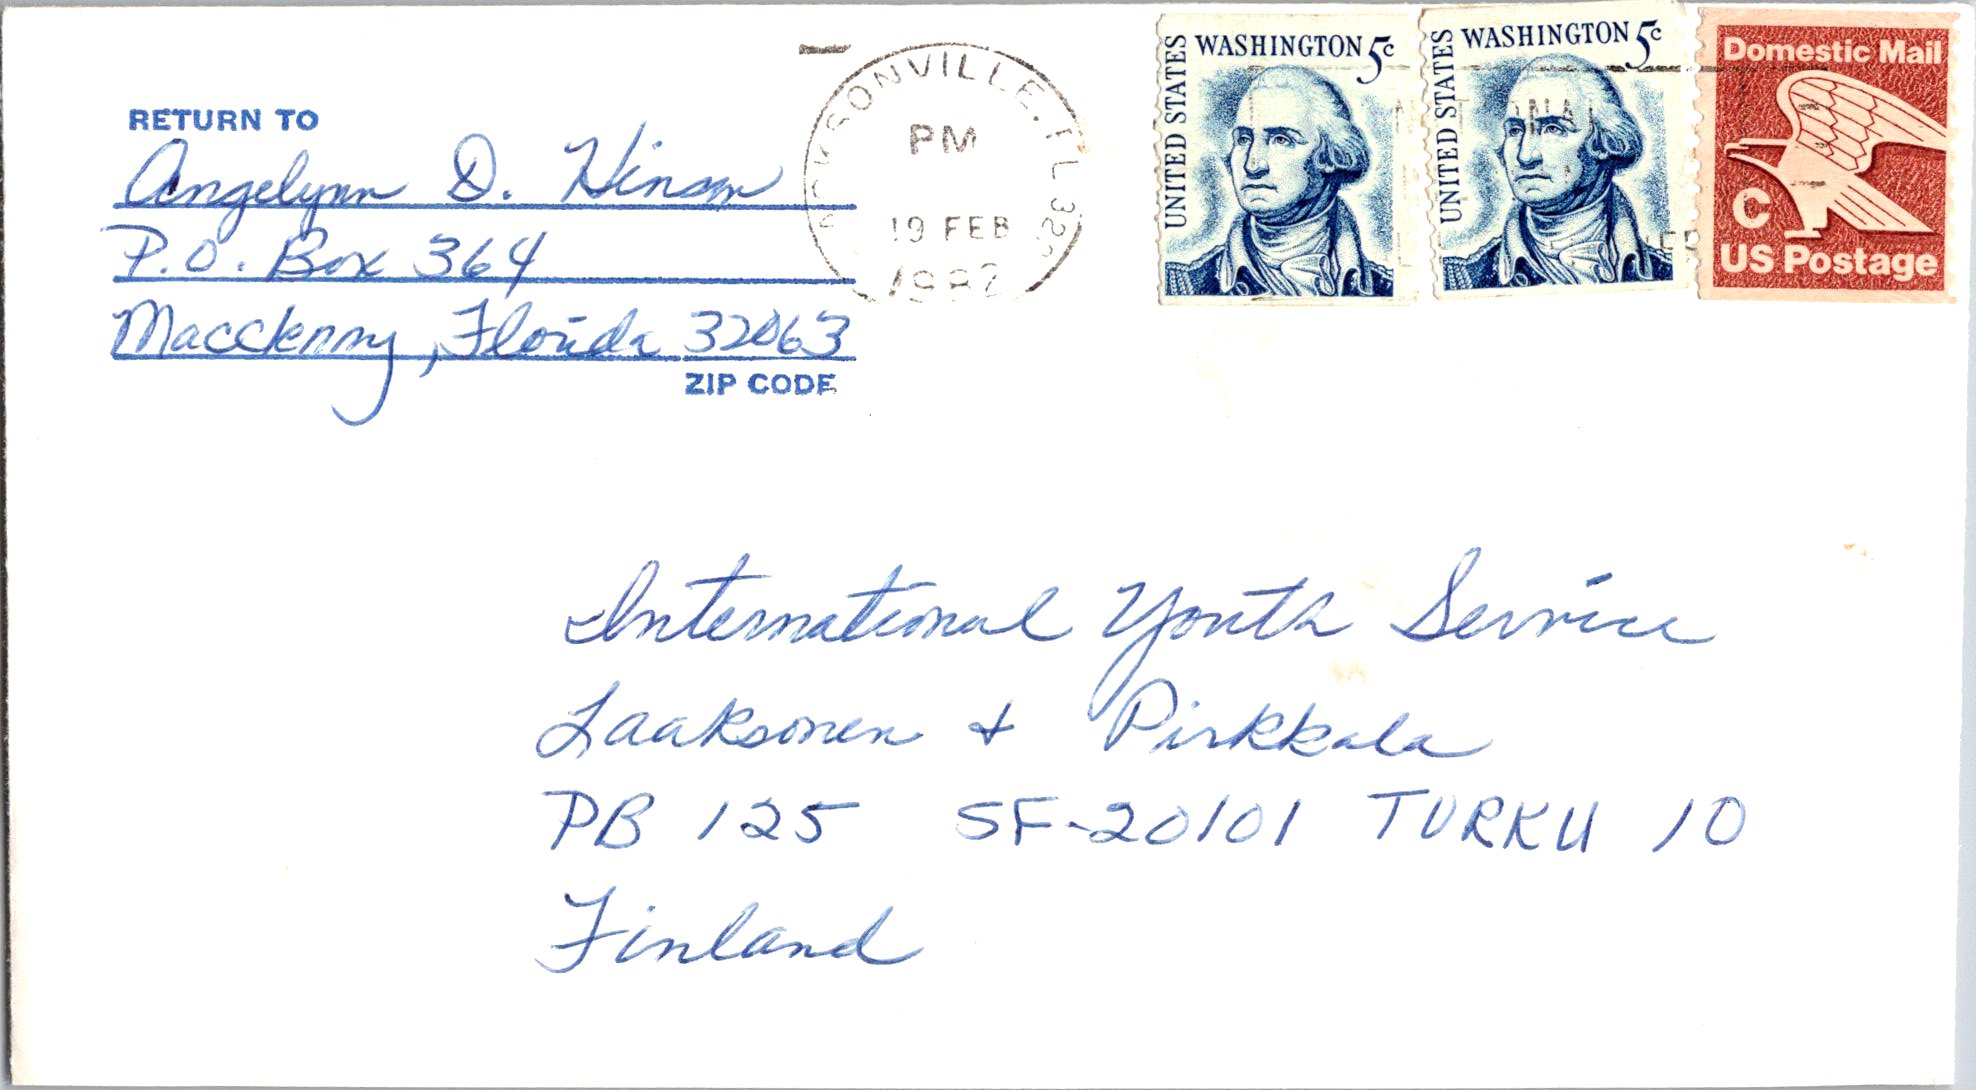 RETURN TO
Angelynn D. Hinson
P.O. Box 364
Macclenny, Florida 32063
ZIP CODE
JACKSONVILLE, FL
PM
19 FEB
1982
UNITED STATES
WASHINGTON 5c
UNITED STATES
WASHINGTON 5c
Domestic Mail
C
US Postage
International Youth Service
Laaksonen & Pirkkala
PB 125 SF-20101 TURKU 10
Finland